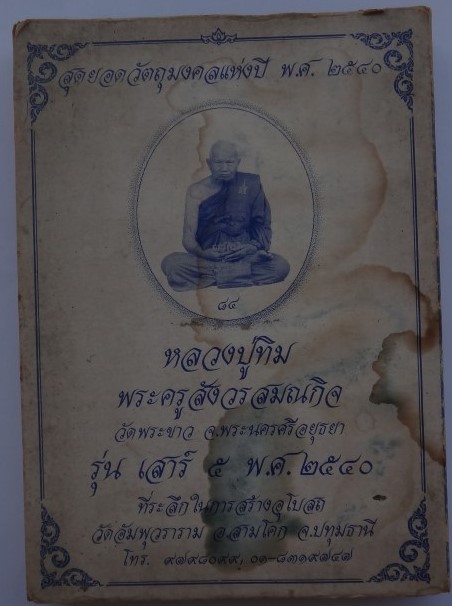 สุดยอดวัตถุมงคลแห่งปี พ.ศ. ๒๕๔๐
๘๔
หลวงปู่ทิม
พระครูสังวรสมณกิจ
วัดพระขาว จ.พระนครศรีอยุธยา
รุ่น เสาร์ ๕ พ.ศ.๒๕๔๐
ที่ระลึกในการสร้างอุโบสถ
วัดอัมพุวราราม อ.สามโคก จ.ปทุมธานี
โทร. ๙๗๙๘๐๙๙, ๐๑-๘๓๑๙๗๔๗